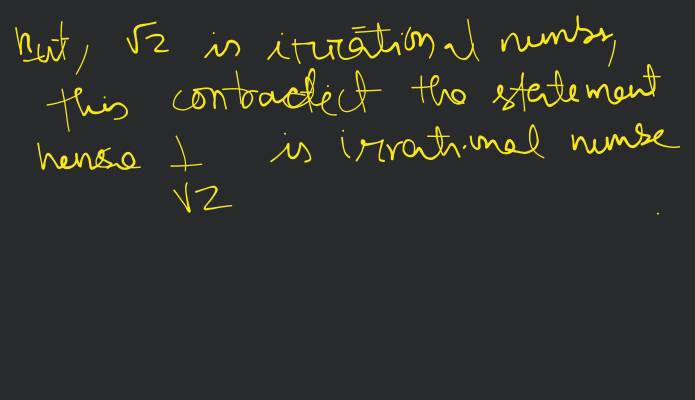 But, √2 is irrational number,
this contradict the statement
hense 1/√2 is irrational numbe